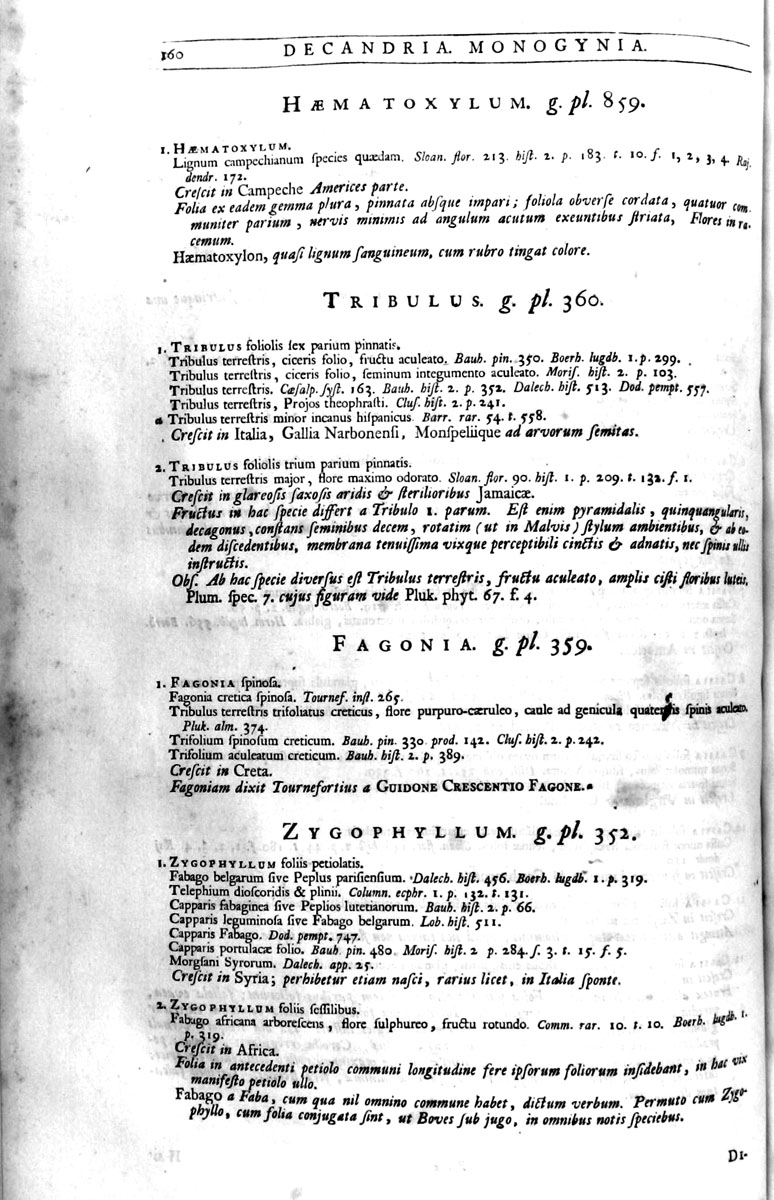 160 DECANDRIA. MONOGYNIA.
HÆMATOXYLUM. g. pl. 859.
1. HÆMATOXYLUM.
Lignum campechianum species quædam. Sloan. flor. 213. hist. 2. p. 183. t. 10. f. 1, 2, 3, 4. Raj.
dendr. 172.
Crescit in Campeche Americes parte.
Folia ex eadem gemma plura, pinnata absque impari; foliola obverse cordata, quatuor com-
muniter parium, nervis minimis ad angulum acutum exeuntibus striata, Flores in ra-
cemum.
Hæmatoxylon, quasi lignum sanguineum, cum rubro tingat colore.
TRIBULUS. g. pl. 360.
1. TRIBULUS foliolis sex parium pinnatis.
Tribulus terrestris, ciceris folio, fructu aculeato. Bauh. pin. 350. Boerh. lugdb. 1. p. 299.
Tribulus terrestris, ciceris folio, seminum integumento aculeato. Moris. hist. 2. p. 103.
Tribulus terrestris. Cæsalp. syst. 163. Bauh. hist. 2. p. 352. Dalech. hist. 513. Dod. pempt. 557.
Tribulus terrestris, Projos theophrasti. Clus. hist. 2. p. 241.
Tribulus terrestris minor incanus hispanicus. Barr. rar. 54. t. 558.
Crescit in Italia, Gallia Narbonensi, Monspeliique ad arvorum semitas.
2. TRIBULUS foliolis trium parium pinnatis.
Tribulus terrestris major, flore maximo odorato. Sloan. flor. 90. hist. 1. p. 209. t. 132. f. 1.
Crescit in glareosis saxosis aridis & sterilioribus Jamaicæ.
Fructus in hac specie differt a Tribulo 1. parum. Est enim pyramidalis, quinquangularis,
decagonus, constans seminibus decem, rotatim (ut in Malvis) stylum ambientibus, & ab eo-
dem discedentibus, membrana tenuissima vixque perceptibili cinctis & adnatis, nec spinis ullis
instructis.
Obs. Ab hac specie diversus est Tribulus terrestris, fructu aculeato, amplis cisti floribus luteis,
Plum. spec. 7. cujus figuram vide Pluk. phyt. 67. f. 4.
FAGONIA. g. pl. 359.
1. FAGONIA spinosa.
Fagonia cretica spinosa. Tournef. inst. 265.
Tribulus terrestris trifoliatus creticus, flore purpuro-cæruleo, caule ad genicula quaternis spinis aculeato.
Pluk. alm. 374.
Trifolium spinosum creticum. Bauh. pin. 330 prod. 142. Clus. hist. 2. p. 242.
Trifolium aculeatum creticum. Bauh. hist. 2. p. 389.
Crescit in Creta.
Fagoniam dixit Tournefortius a GUIDONE CRESCENTIO FAGONE.
ZYGOPHYLLUM. g. pl. 352.
1. ZYGOPHYLLUM foliis petiolatis.
Fabago belgarum sive Peplus parisiensium. Dalech. hist. 456. Boerh. lugdb. 1. p. 319.
Telephium dioscoridis & plinii. Column. ecphr. 1. p. 132. t. 131.
Capparis fabaginea sive Peplios lutetianorum. Bauh. hist. 2. p. 66.
Capparis leguminosa sive Fabago belgarum. Lob. hist. 511.
Capparis Fabago. Dod. pempt. 747.
Capparis portulacæ folio. Bauh. pin. 480. Moris. hist. 2 p. 284. s. 3. t. 15. f. 5.
Morgsani Syrorum. Dalech. app. 25.
Crescit in Syria; perhibetur etiam nasci, rarius licet, in Italia sponte.
2. ZYGOPHYLLUM foliis sessilibus.
Fabago africana arborescens, flore sulphureo, fructu rotundo. Comm. rar. 10. t. 10. Boerh. lugdb. 1.
p. 319.
Crescit in Africa.
Folia in antecedenti petiolo communi longitudine fere ipsorum foliorum insidebant, in hac vix
manifesto petiolo ullo.
Fabago a Faba, cum qua nil omnino commune habet, dictum verbum. Permuto cum Zygo-
phyllo, cum folia conjugata sint, ut Boves sub jugo, in omnibus notis speciebus.
DI-